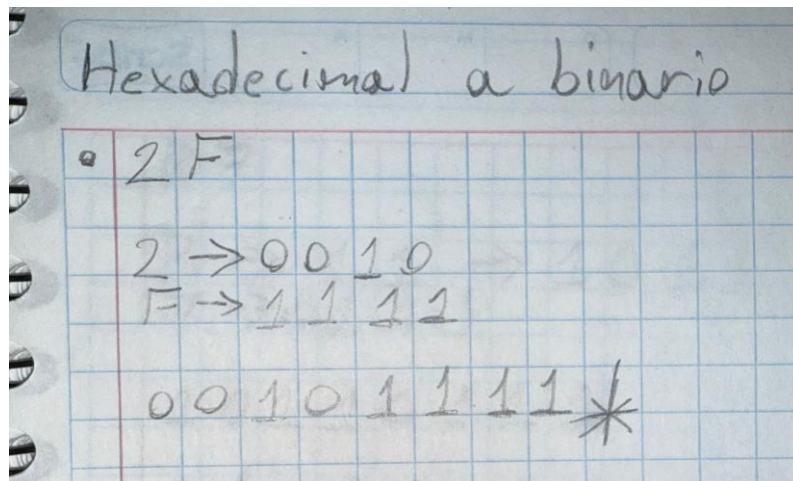 Hexadecimal a binario
• 2F
2 → 0010
F → 1111
00101111*